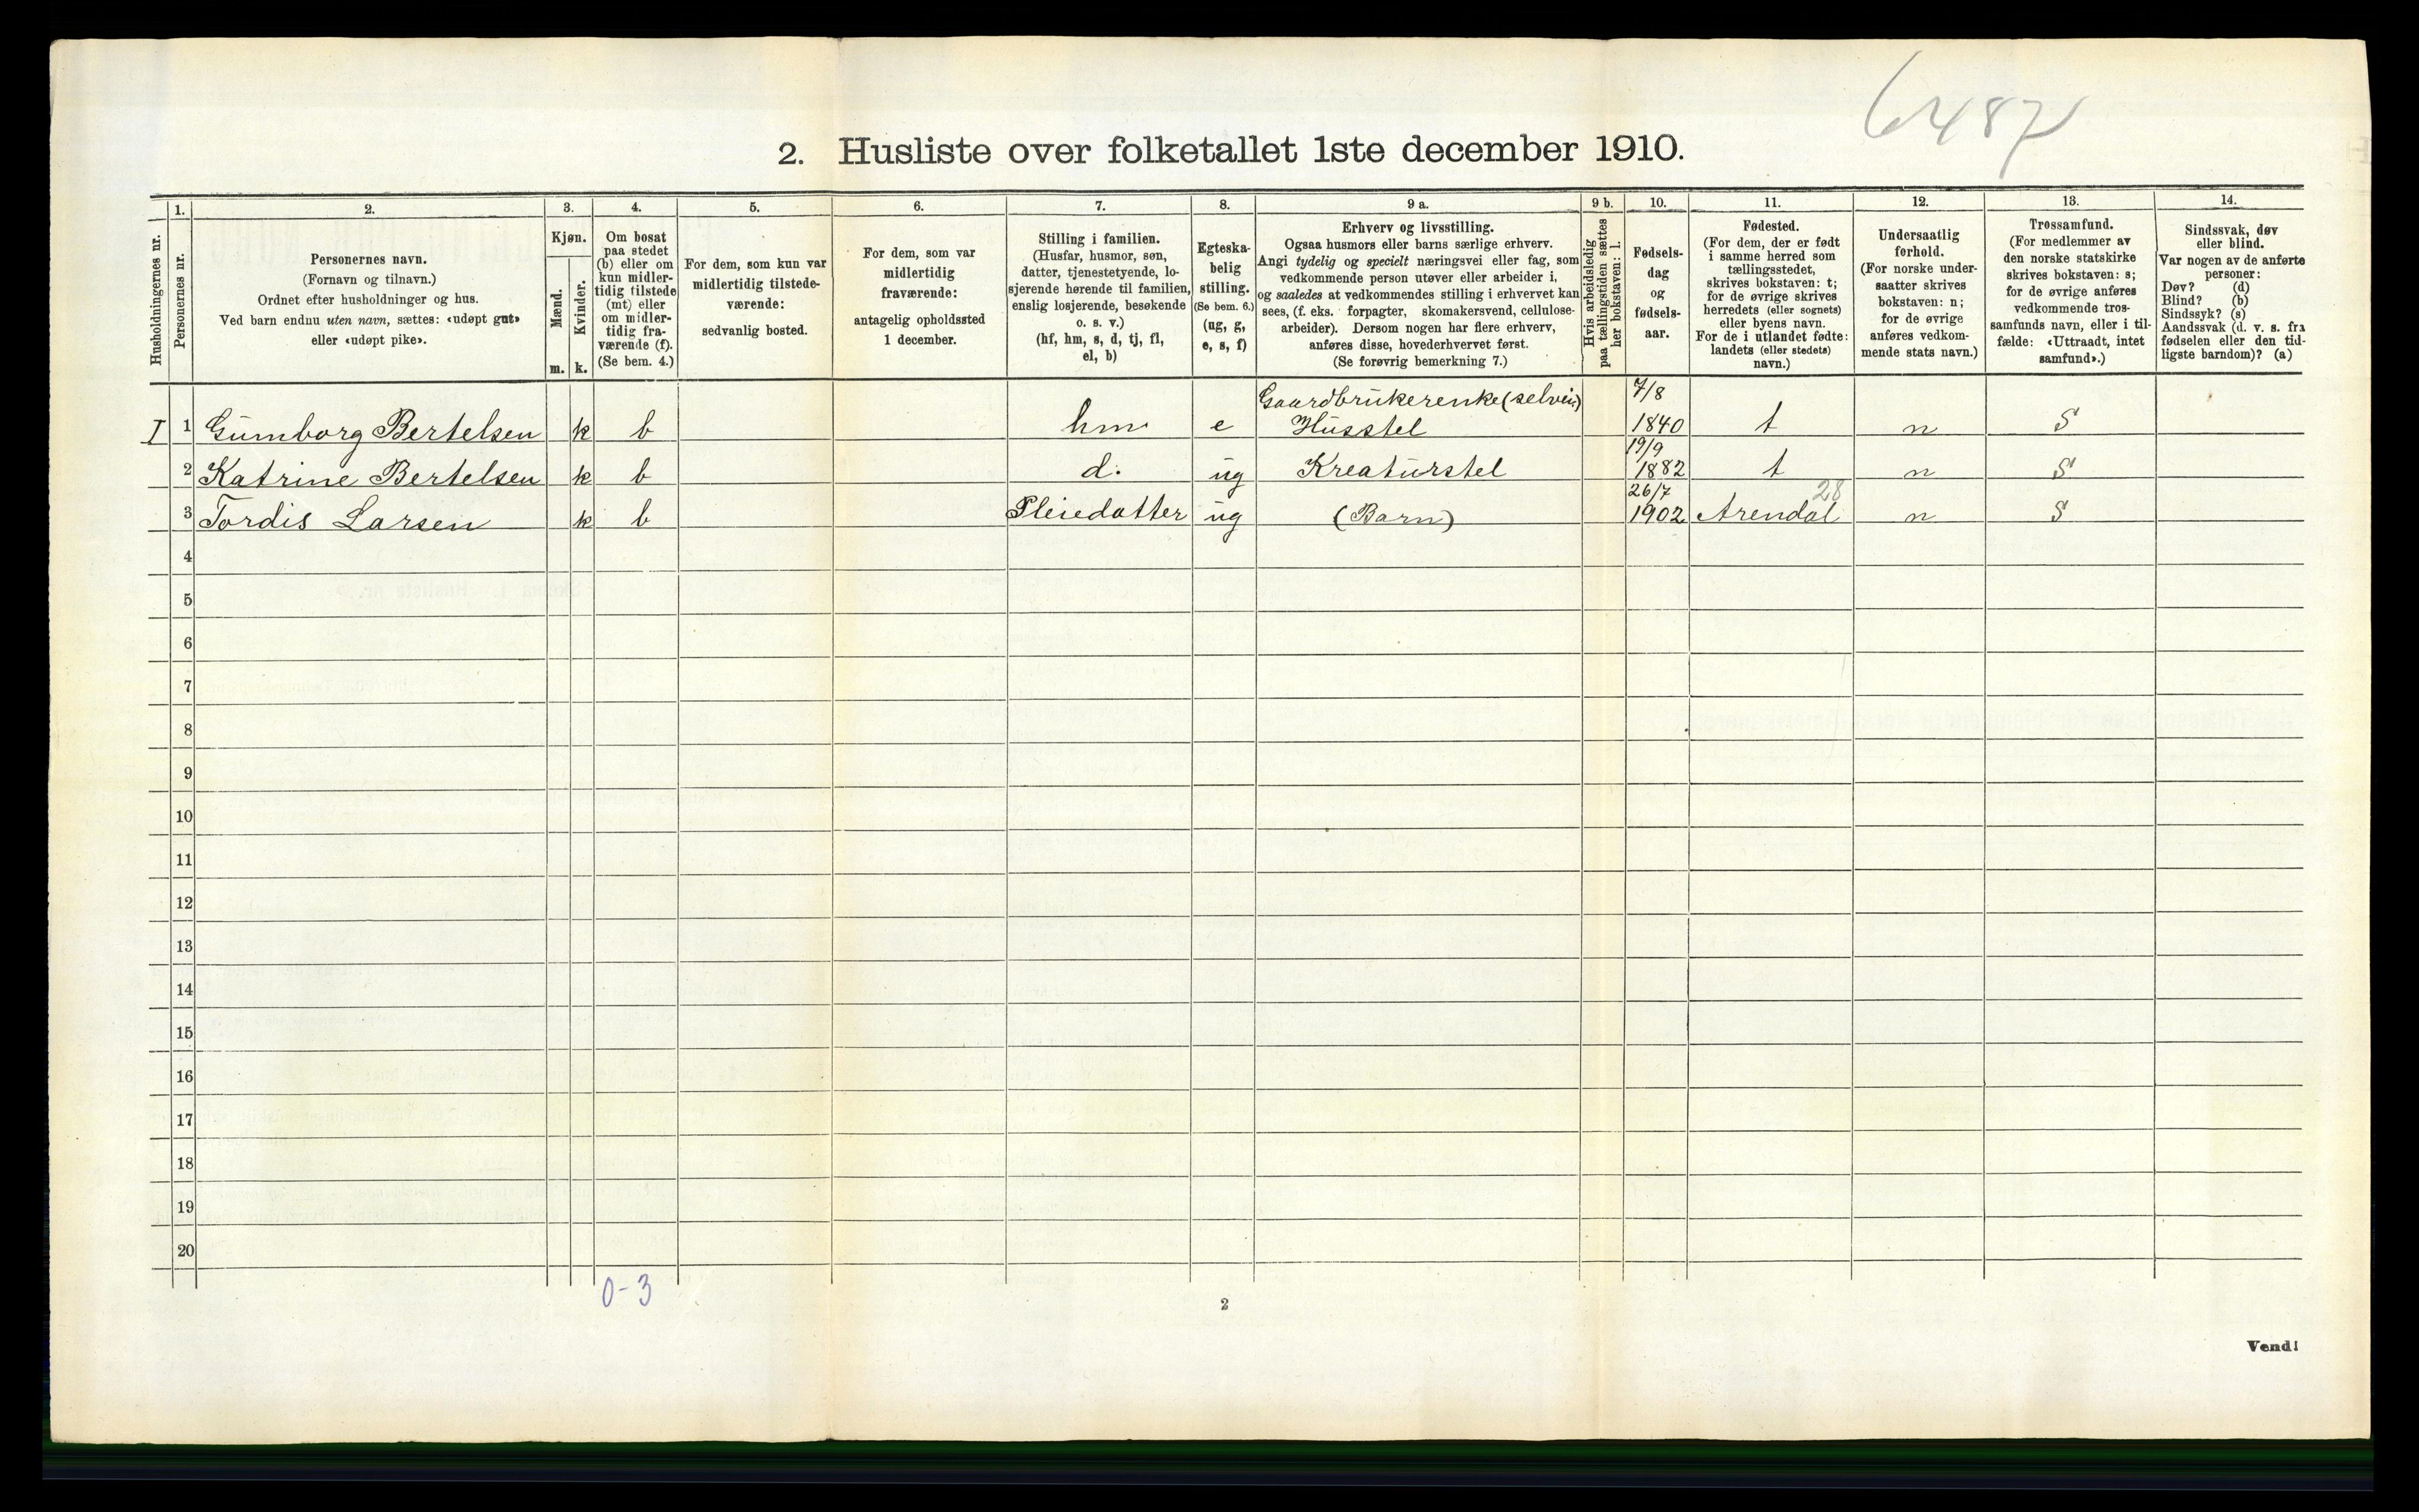 6487
2. Husliste over folketallet 1ste december 1910.
Husholdningernes nr.
1.
Personernes nr.
2.
Personernes navn.
(Fornavn og tilnavn.)
Ordnet efter husholdninger og hus.
Ved barn endnu uten navn, sættes: «udøpt gut»
eller «udøpt pike».
3.
Kjøn.
Mænd.
Kvinder.
m. k.
4.
Om bosat
paa stedet
(b) eller om
kun midler-
tidig tilstede
(mt) eller
om midler-
tidig fra-
værende (f).
(Se bem. 4.)
5.
For dem, som kun var
midlertidig tilstede-
værende:
sedvanlig bosted.
6.
For dem, som var
midlertidig
fraværende:
antagelig opholdssted
1 december.
7.
Stilling i familien.
(Husfar, husmor, søn,
datter, tjenestetyende, lo-
sjerende hørende til familien,
enslig losjerende, besøkende
o. s. v.)
(hf, hm, s, d, tj, fl,
el, b)
8.
Egteska-
belig
stilling.
(Se bem. 6.)
(ug, g,
e, s, f)
9 a.
Erhverv og livsstilling.
Ogsaa husmors eller barns særlige erhverv.
Angi tydelig og specielt næringsvei eller fag, som
vedkommende person utøver eller arbeider i,
og saaledes at vedkommendes stilling i erhvervet kan
sees, (f. eks. forpagter, skomakersvend, cellulose-
arbeider). Dersom nogen har flere erhverv,
anføres disse, hovederhvervet først.
(Se forøvrig bemerkning 7.)
9 b.
Hvis arbeidsledig
paa tællingstiden sættes
her bokstaven: l.
10.
Fødsels-
dag
og
fødsels-
aar.
11.
Fødested.
(For dem, der er født
i samme herred som
tællingsstedet,
skrives bokstaven: t;
for de øvrige skrives
herredets (eller sognets)
eller byens navn.
For de i utlandet fødte:
landets (eller stedets)
navn.)
12.
Undersaatlig
forhold.
(For norske under-
saatter skrives
bokstaven: n;
for de øvrige
anføres vedkom-
mende stats navn.)
13.
Trossamfund.
(For medlemmer av
den norske statskirke
skrives bokstaven: s;
for de øvrige anføres
vedkommende tros-
samfunds navn, eller i til-
fælde: «Uttraadt, intet
samfund».)
14.
Sindssvak, døv
eller blind.
Var nogen av de anførte
personer:
Døv? (d)
Blind? (b)
Sindssyk? (s)
Aandssvak (d. v. s. fra
fødselen eller den tid-
ligste barndom)? (a)
Gaardbrukerenke (selvei) 7/8
I 1 Gumborg Bertelsen k b hm e Husstel 1840 t n S
19/9
2 Katrine Bertelsen k b d. ug Kreaturstel 1882 t n S
26/7 28
3 Tordis Larsen k b Pleiedatter ug (Barn) 1902 Arendal n S
4
5
6
7
8
9
10
11
12
13
14
15
16
17
18
19
20
0-3
2
Vend!